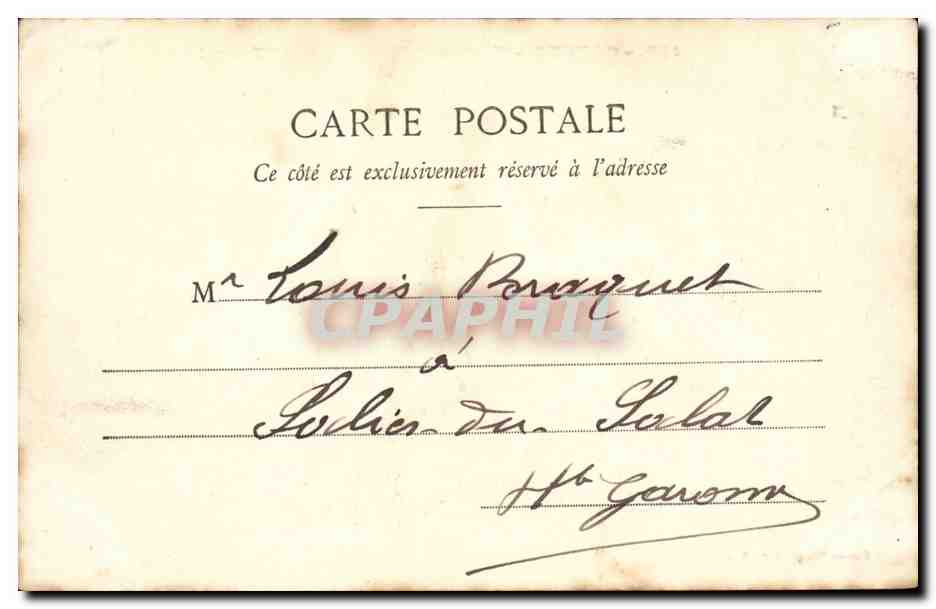 CARTE POSTALE
Ce côté est exclusivement réservé à l'adresse
Mr Louis Braquet
CPAPHIL
à
du Salat
Hte Garonne